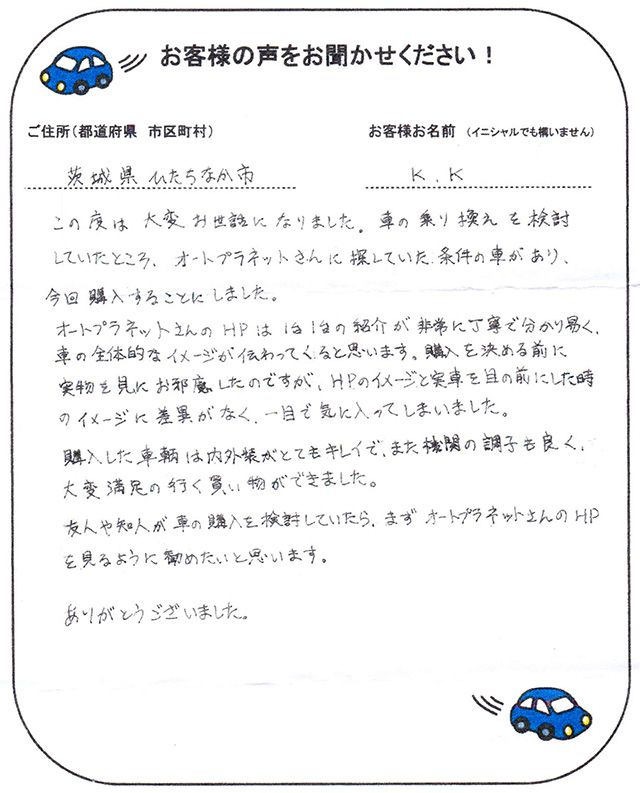 お客様の声をお聞かせください！
ご住所（都道府県 市区町村）
お客様お名前 （イニシャルでも構いません）
茨城県 ひたちなか市
K.K
この度は 大変 お世話に なりました。車の 乗り 換え を 検討
していたところ、オートプラネットさんに 探していた 条件の車が あり、
今回 購入することにしました。
オートプラネットさんの HP は 1台 1台の 紹介が 非常に丁寧で分かり易く、
車の全体的な イメージが伝わってくると思います。購入を決める前に
実物を見に お邪魔したのですが、HPのイメージと実車を目の前にした時
のイメージに 差異がなく、一目で気に入ってしまいました。
購入した 車輌 は内外装がとてもキレイで、また機関の調子も良く、
大変 満足の行く 買い物ができました。
友人や知人が 車の購入を検討していたら、まず オートプラネットさんの HP
を見るように 勧めたいと思います。
ありがとうございました。